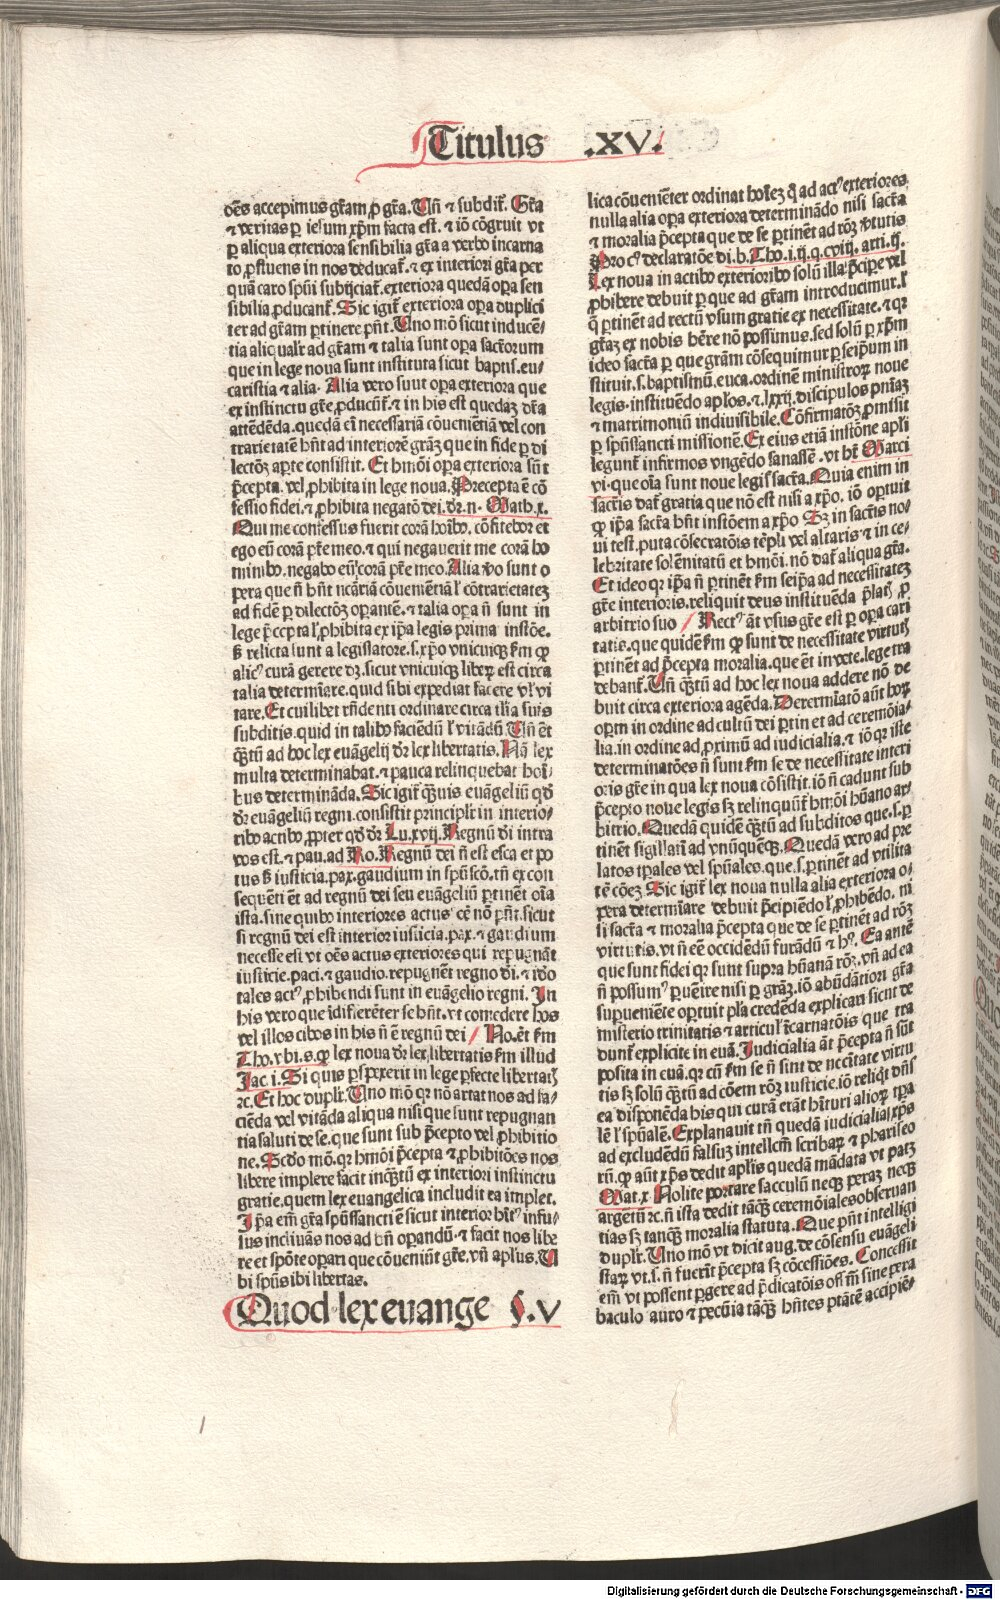 Titulus .XV.
oēs accepimus gr̄am ꝓ gr̄a. Uñ ⁊ subdit᷑. Gr̄a
⁊ veritas ꝑ iesum xp̄m facta est. ⁊ iō cōgruit vt
ꝑ aliqua exteriora sensibilia gr̄a a verbo incarna
to ꝓfluens in nos deducat᷑. ⁊ ex interiori gr̄a per
quā caro spūi subijciat᷑. exteriora quedā oꝑa sen
sibilia ꝓducant᷑. Sic igit᷑ exteriora oꝑa duplici
ter ad gr̄am ꝑtinere pn̄t. Uno mō sicut inducē-
tia aliqualr̄ ad gr̄am ⁊ talia sunt oꝑa sacr̄orum
que in lege noua sunt instituta sicut baptis. eu-
caristia ⁊ alia. Alia vero sunt oꝑa exteriora que
ex instinctu gr̄e ꝓducūt᷑. ⁊ in his est quedaꝫ dr̄a
attēdēda. quedā em̄ necessariā cōueniētiā vel con
trarietatē hn̄t ad interiorē gr̄aꝫ que in fide ꝑ di
lectōꝫ aꝑte consistit. Et hmōi oꝑa exteriora sūt
p̄cepta. vel ꝓhibita in lege noua. Precepta ē cō
fessio fidei. ⁊ ꝓhibita negatō dei. dr̄. n. Math. x.
Qui me confessus fuerit corā hoībꝰ. cōfitebor et
ego eū corā pr̄e meo. ⁊ qui negauerit me corā ho
minibꝰ. negabo eū corā pr̄e meo. Alia v̄o sunt o
pera que n̄ hn̄t ncāriā cōuenientiā l' cōtrarietateꝫ
ad fidē ꝑ dilectōꝫ oꝑantē. ⁊ talia oꝑa n̄ sunt in
lege p̄cepta l' ꝓhibita ex ip̄a legis prima instōe.
ꝣ relicta sunt a legislatore. s. xp̄o vnicuiqꝫ ẜm ꝙ
alicꝰ curā gerere dꝫ. sicut vnicuiqꝫ liberꝝ est circa
talia determīare. quid sibi expediat facere vl' vi
tare. Et cuilibet r̄ndenti ordinare circa illa suis
subditis. quid in talibꝰ faciēdū l' vitādū Un̄ ēt
qꝫtū ad hoc lex euāgelij dr̄ lex libertatis. Nā lex
multa determinabat. ⁊ pauca relinquebat hoī-
bus determināda. Sic igit᷑ qꝫuis euāgeliū qd̄
dr̄ euāgeliū regni. consistit principlr̄ in interio-
ribꝰ actibꝰ. ꝓpter qd̄ dr̄ Lu. xvij. Regnū dī intra
vos est. ⁊ pau. ad Ro. Regnū dei n̄ est esca et po
tus ꝣ iusticia. pax. gaudium in spū sc̄o. tn̄ ex con
sequēti ēt ad regnū dei seu euāgeliū ꝑtinēt oīa
ista. sine quibꝰ interiores actus eē nō pn̄t. sicut
si regnū dei est interior iusticia. pax. ⁊ gaudium
necesse est vt oēs actus exteriores qui repugnāt
iusticie. paci. ⁊ gaudio. repugnēt regno dī. ⁊ iō
tales actꝰ ꝓhibendi sunt in euāgelio regni. In
his vero que īdifferēter se hn̄t. vt comedere hos
vel illos cibos in his n̄ ē regnū dei / No. ēt ẜm
Tho. vbi. s. ꝙ lex noua dr̄ lex libertatis ẜm illud
Jac. i. Si quis ꝑspexerit in lege ꝑfecte libertatꝭ
⁊c. Et hoc duplr̄. Uno mō qꝛ nō artat nos ad fa-
ciēda vel vitāda aliqua nisi que sunt repugnan
tia saluti de se. que sunt sub p̄cepto vel ꝓhibitio
ne. Scd̄o mō. qꝛ hmōi p̄cepta ⁊ ꝓhibitōes nos
libere implere facit inqꝫtū ex interiori instinctu
gratie. quem lex euangelica includit ea implet.
Ip̄a em̄ gr̄a spūssancti ē sicut interior hītꝰ infu-
sus inclinās nos ad bn̄ oꝑandū. ⁊ facit nos libe
re et spōte oꝑari que cōueniūt gr̄e. vn̄ aplus. U
bi spūs ibi libertas.
Quod lex euange §. V
lica cōueniēter ordinat hoīeꝫ qꝫ ad actꝰ exteriores
nulla alia oꝑa exteriora determinādo nisi sacr̄a
⁊ moralia p̄cepta que de se ꝑtinēt ad rōꝫ v̄tutis
Pro cꝰ declaratōe di. b. Tho. i. ij. q. cviij. arti. ij.
Lex noua in actibꝰ exterioribꝰ solū illa p̄cipe vel
ꝓhibere debuit ꝑ que ad gr̄am introducimur. l'
q̄ ꝑtinēt ad rectū vsum gratie ex necessitate. ⁊ qꝛ
gr̄aꝫ ex nobis hēre nō possumus. sed solū ꝑ xp̄m
ideo sacr̄a ꝑ que grām cōsequimur ꝑ seipsum in
stituit. s. baptismū. euca. ordinē ministroꝝ noue
legis. instituēdo ap̄los. ⁊. lxxij. discipulos pn̄iaꝫ
⁊ matrimoniū indiuisibile. Cōfirmatōꝫ ꝓmisit
ꝑ spūssancti missionē. Ex eius etiā instōne apli
legunt᷑ infirmos vngēdo sanasse. vt hr̄ Marci
vi. que oīa sunt noue legis sacr̄a. Quia enim in
sacr̄is dat᷑ gratia que nō est nisi a xp̄o. iō oportuit
ꝙ ip̄a sacr̄a hn̄t instōem a xp̄o Sꝫ in sacr̄is no-
ui test. puta cōsecratōis tēpli vel altaris ⁊ in ce-
lebritate solēnitatū et hmōi. nō dat᷑ aliqua gr̄a.
Et ideo qꝛ ip̄a n̄ ꝑtinēt ẜm seip̄a ad necessitateꝫ
gr̄e interioris. reliquit deus instituēda p̄latꝭ ꝓ
arbitrio suo / Rectꝰ āt vsus gr̄e est ꝑ oꝑa cari
tatis. que quidē ẜm ꝙ sunt de necessitate virtutꝭ
ꝑtinēt ad p̄cepta moralia. que ēt in vete. lege tra
debant᷑. Un̄ qꝫtū ad hoc lex noua addere nō de
buit circa exteriora agēda. Determīatō aūt hoꝝ
oꝑm in ordine ad cultū dei ꝑtinet ad ceremōia-
lia. in ordine ad ꝓximū ad iudicialia. ⁊ iō qꝛ iste
determinatōes n̄ sunt ẜm se de necessitate interi
oris gr̄e in qua lex noua cōsistit. iō n̄ cadunt sub
p̄cepto noue legis sꝫ relinquūt᷑ hmōi hūano ar-
bitrio. Quedā quidē qꝫtū ad subditos que. s. ꝑ
tinēt sigillatī ad vnūquēqꝫ. Quedā vero ad pre
latos tꝑales vel spūales. que. s. ꝑtinēt ad vtilita
tē cōeꝫ Sic igit᷑ lex noua nulla alia exteriora o-
pera determīare debuit p̄cipiēdo l' ꝓhibēdo. ni
si sacr̄a ⁊ moralia p̄cepta que de se ꝑtinēt ad rōꝫ
virtutis. vt n̄ eē occidēdū furādū ⁊ hꝰ. Ea autē
que sunt fidei qꝛ sunt supra hūanā rōꝫ. vn̄ ad ea
n̄ possumꝰ ꝑuēire nisi ꝑ grāꝫ. iō abūdātiori gr̄a
supueniēte oportuit pl'a credēda explicari sicut de
misterio trinitatis ⁊ articul' īcarnatōis que tra
dunt᷑ explicite in euā. Iudicialia āt p̄cepta n̄ sūt
posita in euā. qꝛ cū ẜm se n̄ sint de nccītate virtu
tis sꝫ solū qꝫtū ad cōem rōꝫ iusticie. iō reliqt dn̄s
ea disponēda his qui curā erāt hīturi alioꝝ tꝑa
lē l' spūalē. Explanauit tn̄ quedā iudicialia xp̄s
ad excludēdū falsuꝫ intellcm̄ scribaꝝ ⁊ phariseo
rū. ꝙ aūt xp̄s dedit apl̄is quedā mādata vt patꝫ
Mat. x. Nolite portare sacculū neqꝫ peraꝫ necqꝫ
argētū ⁊c. n̄ ista dedit tāqꝫ ceremōiales obseruan
tias sꝫ tanqꝫ moralia statuta. Que pn̄t intelligi
duplr̄. Uno mō vt dicit aug. de cōsensu euāgeli
staꝝ vt. s. n̄ fuerīt p̄cepta sꝫ cōcessiōes. Concessit
em̄ vt possent ꝑgere ad p̄dicatōis off̄m sine pera
baculo auro ⁊ pecūia tāqꝫ hn̄tes ptātē accipiē-
Digitalisierung gefördert durch die Deutsche Forschungsgemeinschaft - DFG